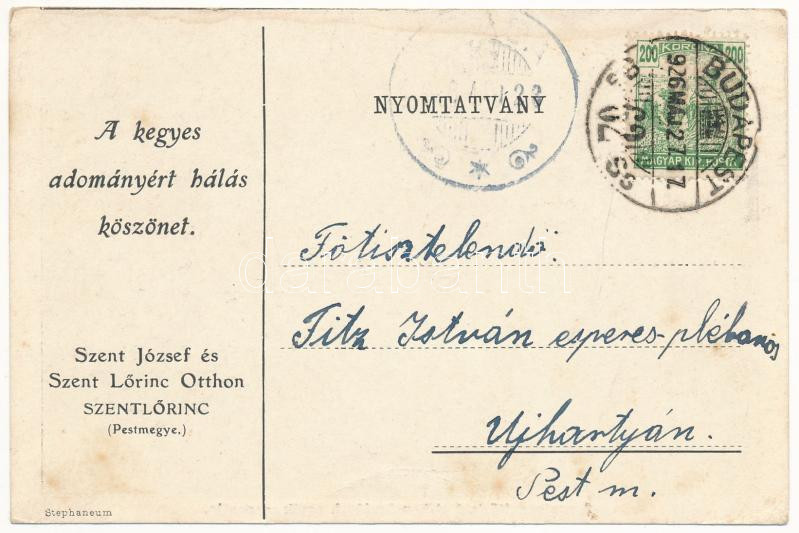 A kegyes
adományért hálás
köszönet.
Szent József és
Szent Lőrinc Otthon
SZENTLŐRINC
(Pestmegye.)
Stephaneum
NYOMTATVÁNY
200 KORONA 200
MAGYAR KIR. POSTA
BUDAPEST
70
Főtisztelendő
Fitz István esperes-plébános
Ujhartyán.
Pest m.
darabanth